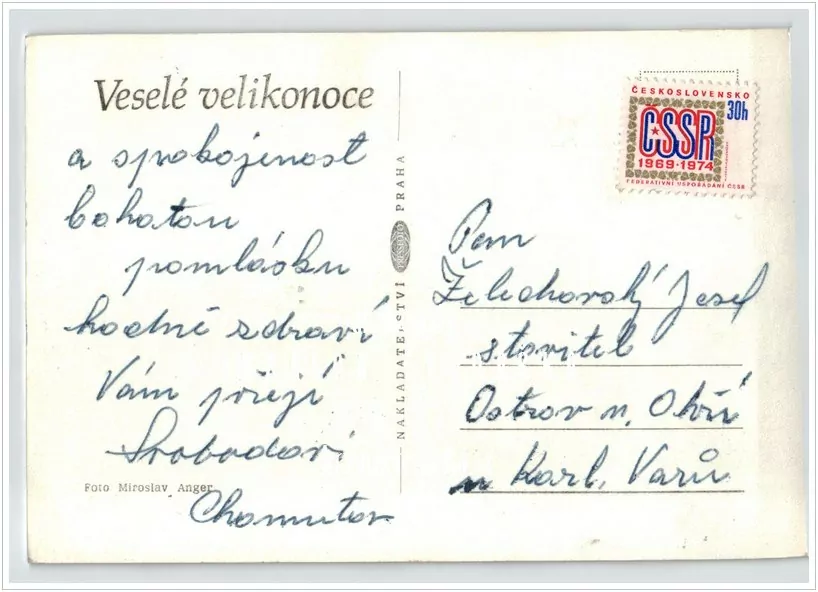 Veselé velikonoce
a spokojenost
bohatou
pomlásku
hodně zdraví
Vám přejí
Svobodovi
Chomutov
Foto Miroslav Anger
NAKLADATELSTVÍ PRESSFOTO PRAHA
ČESKOSLOVENSKO
30h
ČSSR
1969·1974
FEDERATIVNÍ USPOŘÁDÁNÍ ČSSR
Pan
Želechovský Josef
stavitel
Ostrov n. Ohří
u Karl. Varů